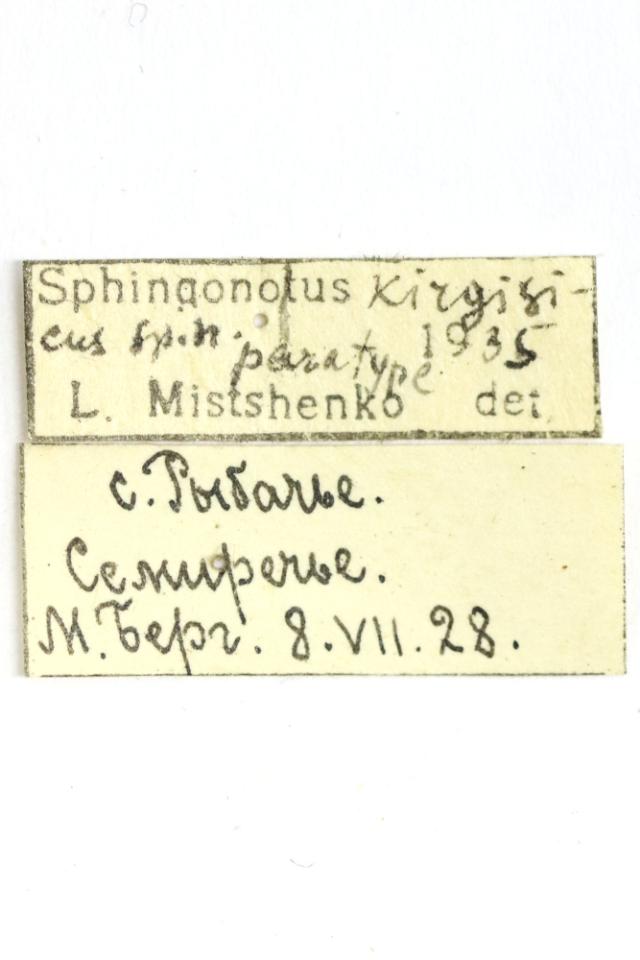 Sphingonotus Kirgisi-
cus sp.n. paratype 1935
L. Mistshenko det.
с. Рыбачье.
Семиречье.
М. Берг. 8.VII.28.